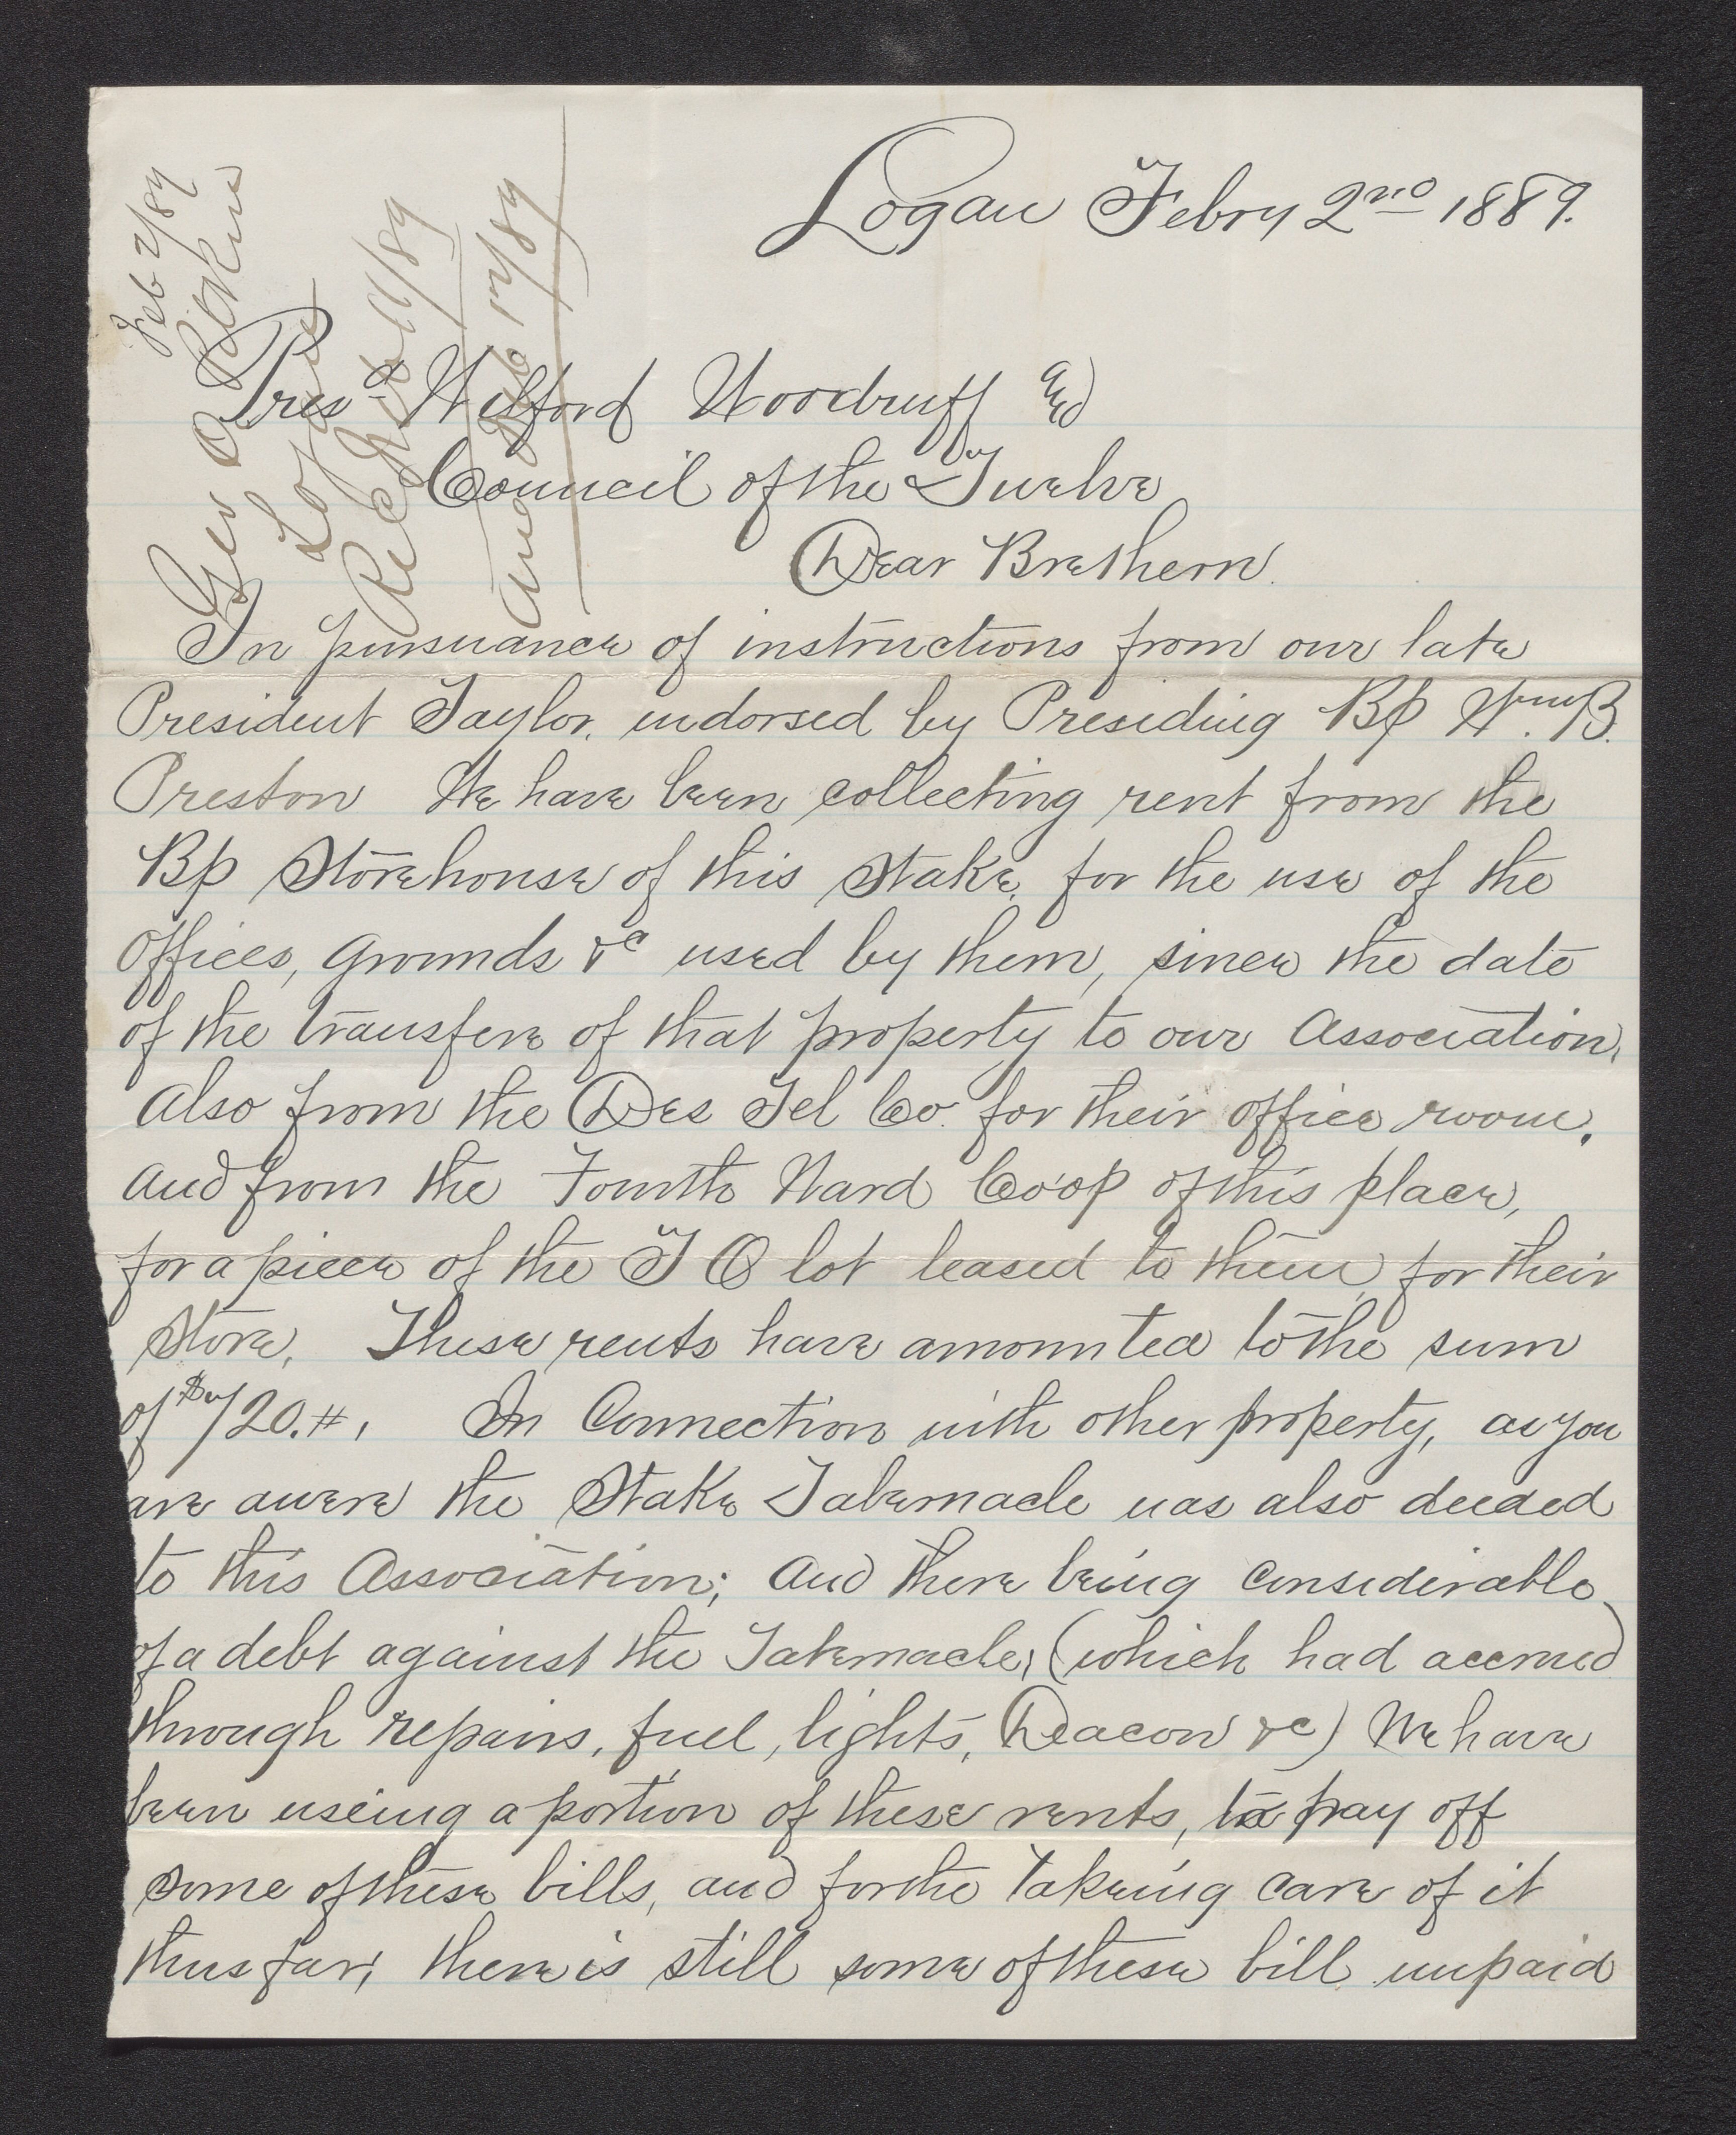 Logan Febry 2nd 1889.
Feb 2/89
Geo O Pitkin
Logan
Rec Feb 11/89
Ans Feb 17/89
Prest Wilford Woodruff and
Council of the Twelve
Dear Brethern.
In pursuance of instructions from our late
President Taylor, indorsed by Presiding Bp Wm. B.
Preston We have been collecting rent from the
Bp Storehouse of this Stake, for the use of the
Offices, grounds &c used by them, since the date
of the transfere of that property to our Association,
Also from the Des Tel Co. for their office room,
and from the Fourth Ward Co'op of this place,
for a piece of the T O lot leased to them, for their
Store, These rents have amounted to the sum
of $720.#, In Connection with other property, as you
are awere the Stake Tabernacle was also deeded
to this Association; and there being considerable
of a debt against the Tabernacle, (which had accrued)
through repairs, fuel, lights, Deacon &c) We have
been useing a portion of these rents, to pay off
some of these bills, and for the takeing care of it
thus far, there is still some of these bill unpaid